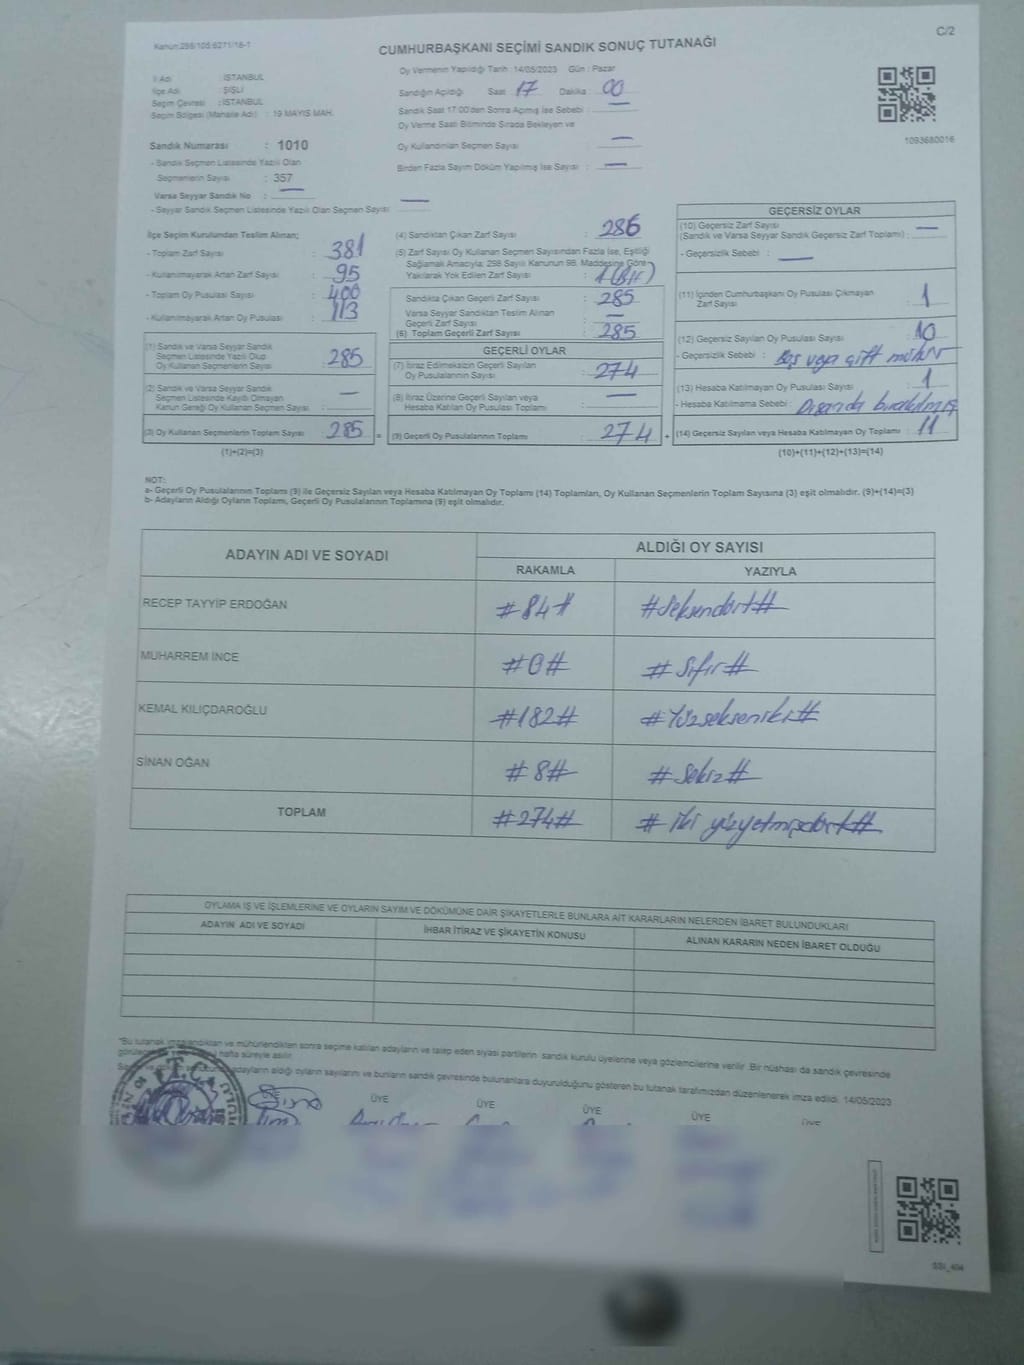 Kanun:298/105:6271/18-1
C/2
CUMHURBAŞKANI SEÇİMİ SANDIK SONUÇ TUTANAĞI
İl Adı : İSTANBUL
İlçe Adı : ŞİŞLİ
Seçim Çevresi : İSTANBUL
Seçim Bölgesi (Mahalle Adı) : 19 MAYIS MAH.
Sandık Numarası : 1010
- Sandık Seçmen Listesinde Yazılı Olan
Seçmenlerin Sayısı : 357
Varsa Seyyar Sandık No : —
- Seyyar Sandık Seçmen Listesinde Yazılı Olan Seçmen Sayısı —
Oy Vermenin Yapıldığı Tarih : 14/05/2023 Gün : Pazar
Sandığın Açıldığı Saat 17 Dakika : 00
Sandık Saat 17:00'den Sonra Açılmış İse Sebebi : —
Oy Verme Saati Bitiminde Sırada Bekleyen ve
Oy Kullandırılan Seçmen Sayısı : —
Birden Fazla Sayım Döküm Yapılmış İse Sayısı : —
1093680016
İlçe Seçim Kurulundan Teslim Alınan;
- Toplam Zarf Sayısı : 381
- Kullanılmayarak Artan Zarf Sayısı : 95
- Toplam Oy Pusulası Sayısı : 400
- Kullanılmayarak Artan Oy Pusulası : 113
(1) Sandık ve Varsa Seyyar Sandık
Seçmen Listesinde Yazılı Olup
Oy Kullanan Seçmenlerin Sayısı : 285
(2) Sandık ve Varsa Seyyar Sandık
Seçmen Listesinde Kayıtlı Olmayan
Kanun Gereği Oy Kullanan Seçmen Sayısı : —
(3) Oy Kullanan Seçmenlerin Toplam Sayısı : 285 =
(1)+(2)=(3)
(4) Sandıktan Çıkan Zarf Sayısı : 286
(5) Zarf Sayısı Oy Kullanan Seçmen Sayısından Fazla İse, Eşitliği
Sağlamak Amacıyla; 298 Sayılı Kanunun 98. Maddesine Göre
Yakılarak Yok Edilen Zarf Sayısı : 1 (Bir)
Sandıkta Çıkan Geçerli Zarf Sayısı : 285
Varsa Seyyar Sandıktan Teslim Alınan
Geçerli Zarf Sayısı : —
(6) Toplam Geçerli Zarf Sayısı : 285
GEÇERLİ OYLAR
(7) İtiraz Edilmeksizin Geçerli Sayılan
Oy Pusulalarının Sayısı : 274
(8) İtiraz Üzerine Geçerli Sayılan veya
Hesaba Katılan Oy Pusulası Toplamı : —
(9) Geçerli Oy Pusulalarının Toplamı : 274 +
GEÇERSİZ OYLAR
(10) Geçersiz Zarf Sayısı
(Sandık ve Varsa Seyyar Sandık Geçersiz Zarf Toplamı) : —
- Geçersizlik Sebebi : —
(11) İçinden Cumhurbaşkanı Oy Pusulası Çıkmayan
Zarf Sayısı : 1
(12) Geçersiz Sayılan Oy Pusulası Sayısı : 10
- Geçersizlik Sebebi : Boş veya çift mühür
(13) Hesaba Katılmayan Oy Pusulası Sayısı : 1
- Hesaba Katılmama Sebebi : Dışarıda bırakılmış
(14) Geçersiz Sayılan veya Hesaba Katılmayan Oy Toplamı : 11
(10)+(11)+(12)+(13)=(14)
NOT:
a- Geçerli Oy Pusulalarının Toplamı (9) ile Geçersiz Sayılan veya Hesaba Katılmayan Oy Toplamı (14) Toplamları, Oy Kullanan Seçmenlerin Toplam Sayısına (3) eşit olmalıdır. (9)+(14)=(3)
b- Adayların Aldığı Oyların Toplamı, Geçerli Oy Pusulalarının Toplamına (9) eşit olmalıdır.
ADAYIN ADI VE SOYADI
ALDIĞI OY SAYISI
RAKAMLA YAZIYLA
RECEP TAYYİP ERDOĞAN #84# #Seksendört#
MUHARREM İNCE #0# #Sıfır#
KEMAL KILIÇDAROĞLU #182# #Yüzsekseniki#
SİNAN OĞAN #8# #Sekiz#
TOPLAM #274# #İki yüzyetmişdört#
OYLAMA İŞ VE İŞLEMLERİNE VE OYLARIN SAYIM VE DÖKÜMÜNE DAİR ŞİKAYETLERLE BUNLARA AİT KARARLARIN NELERDEN İBARET BULUNDUKLARI
ADAYIN ADI VE SOYADI İHBAR İTİRAZ VE ŞİKAYETİN KONUSU ALINAN KARARIN NEDEN İBARET OLDUĞU
*Bu tutanak imzalandıktan ve mühürlendikten sonra seçime katılan adayların ve talep eden siyasi partilerin sandık kurulu üyelerine veya gözlemcilerine verilir. Bir nüshası da sandık çevresinde
hafta süreyle asılır.
adayların aldığı oyların sayılarını ve bunların sandık çevresinde bulunanlara duyurulduğunu gösteren bu tutanak tarafımızdan düzenlenerek imza edildi. 14/05/2023
T.C.
ÜYE ÜYE ÜYE ÜYE ÜYE
SSİ_404